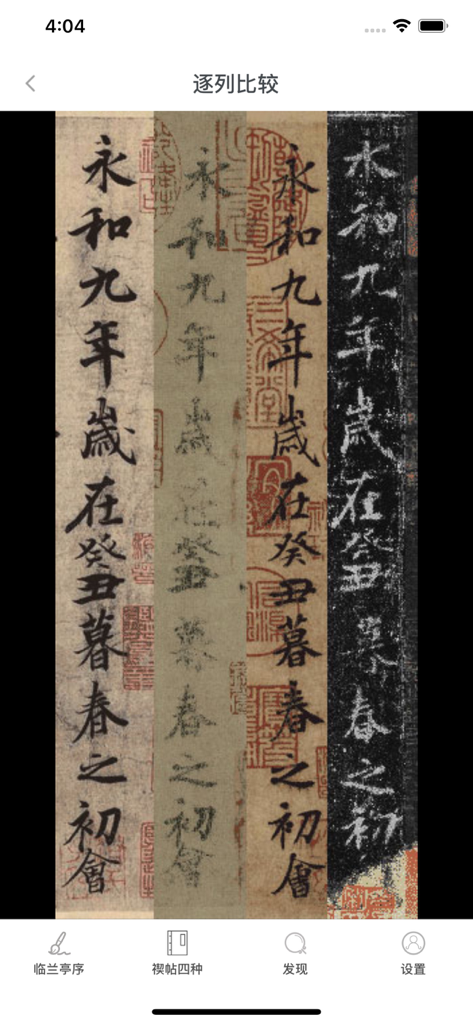 4:04
逐列比较
永和九年歲在癸丑暮春之初會
永和九年歲在癸丑暮春之初會
永和九年歲在癸丑暮春之初會
永和九年歲在癸丑暮春之初
临兰亭序
禊帖四种
发现
设置